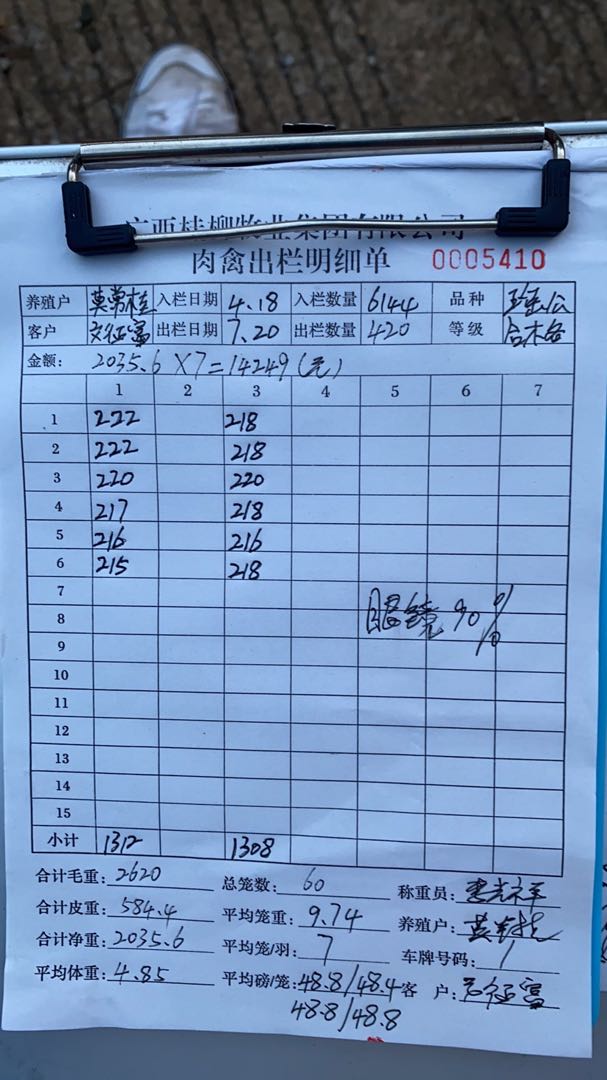 广西桂柳牧业集团有限公司
肉禽出栏明细单 0005410
养殖户 入栏日期 4.18 入栏数量 6144 品种
客户 出栏日期 7.20 出栏数量 420 等级
金额: 2035.6 X7=14249(元)
1 2 3 4 5 6 7
1 222 218
2 222 218
3 220 220
4 217 218
5 216 216
6 215 218
7
8 眼镜 90%
9
10
11
12
13
14
15
小计 1312 1308
合计毛重: 2620 总笼数: 60 称重员:
合计皮重: 584.4 平均笼重: 9.74 养殖户:
合计净重: 2035.6 平均笼/羽: 7 车牌号码: 1
平均体重: 4.85 平均磅/笼: 48.8/48.4 客户:
48.8/48.8